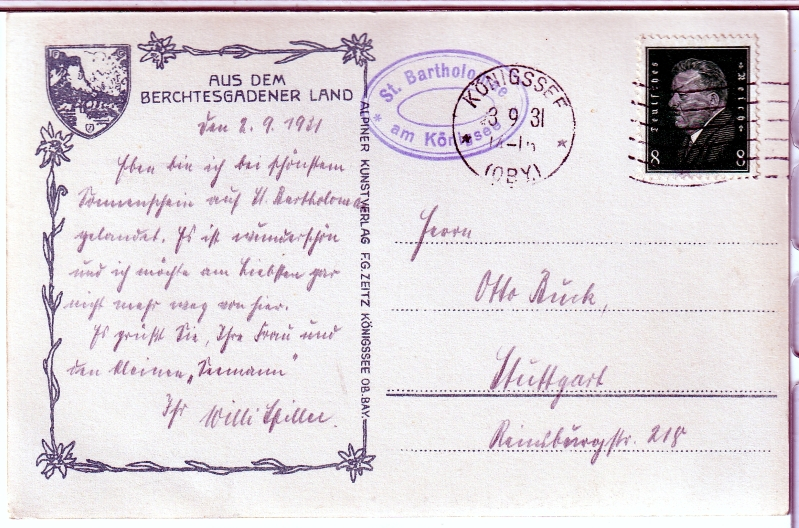 AUS DEM
BERCHTESGADENER LAND
den 2. 9. 1931
Eben bin ich bei schönstem
Sonnenschein auf St. Bartholomä
gelandet. Es ist wunderschön
und ich möchte am Liebsten gar
nicht mehr weg von hier.
Es grüßt Sie, Ihre Frau und
den kleinen „Seemann"
Ihr Willi
ALPINER KUNSTVERLAG F.G. ZEITZ KÖNIGSSEE OB.BAY.
St. Bartholomae
* am Königssee
KÖNIGSSEE
3 9 31
* *
(OBY)
Deutsches Reich
8 8
Herrn
Otto Ruck,
Stuttgart
Reinsburgstr. 218